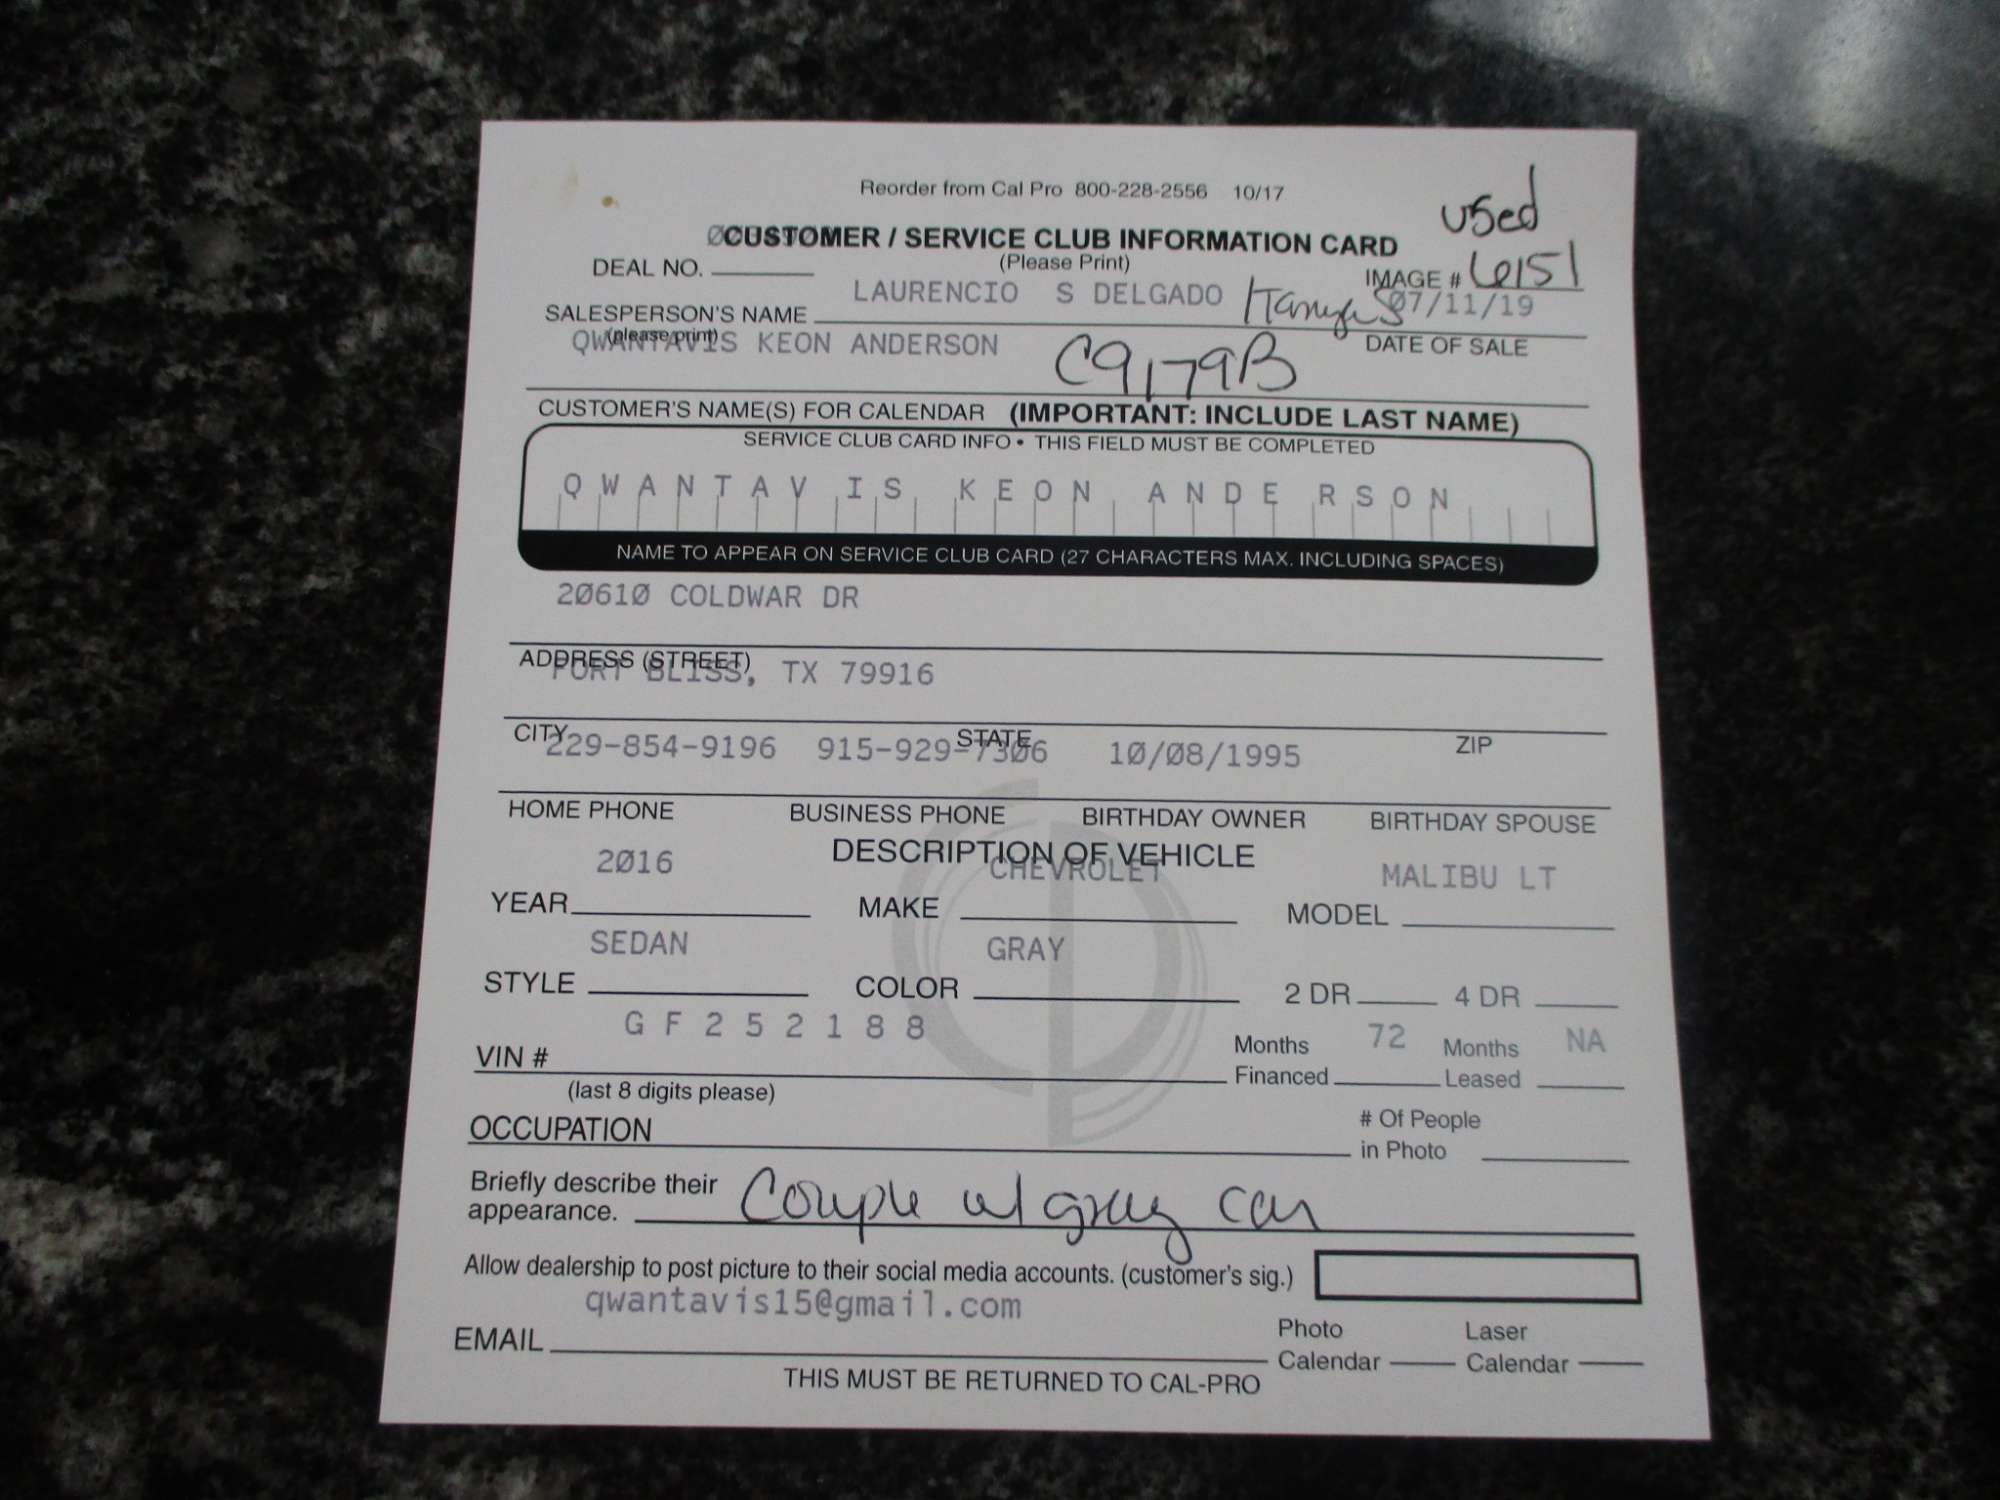 Reorder from Cal Pro 800-228-2556 10/17
used
CUSTOMER / SERVICE CLUB INFORMATION CARD
(Please Print)
DEAL NO.
IMAGE # 6151
LAURENCIO S DELGADO
07/11/19
SALESPERSON'S NAME
(please print)
DATE OF SALE
QWANTAVIS KEON ANDERSON C9179B
CUSTOMER'S NAME(S) FOR CALENDAR (IMPORTANT: INCLUDE LAST NAME)
SERVICE CLUB CARD INFO • THIS FIELD MUST BE COMPLETED
QWANTAVIS KEON ANDERSON
NAME TO APPEAR ON SERVICE CLUB CARD (27 CHARACTERS MAX. INCLUDING SPACES)
20610 COLDWAR DR
ADDRESS (STREET)
FORT BLISS, TX 79916
CITY STATE ZIP
229-854-9196 915-929-7306 10/08/1995
HOME PHONE BUSINESS PHONE BIRTHDAY OWNER BIRTHDAY SPOUSE
DESCRIPTION OF VEHICLE
2016 CHEVROLET MALIBU LT
YEAR MAKE MODEL
SEDAN GRAY
STYLE COLOR 2 DR 4 DR
GF252188
VIN #
(last 8 digits please)
Months Financed 72 Months Leased NA
OCCUPATION
# Of People in Photo
Briefly describe their appearance. Couple w/ gray car
Allow dealership to post picture to their social media accounts. (customer's sig.)
qwantavis15@gmail.com
EMAIL
Photo Calendar Laser Calendar
THIS MUST BE RETURNED TO CAL-PRO